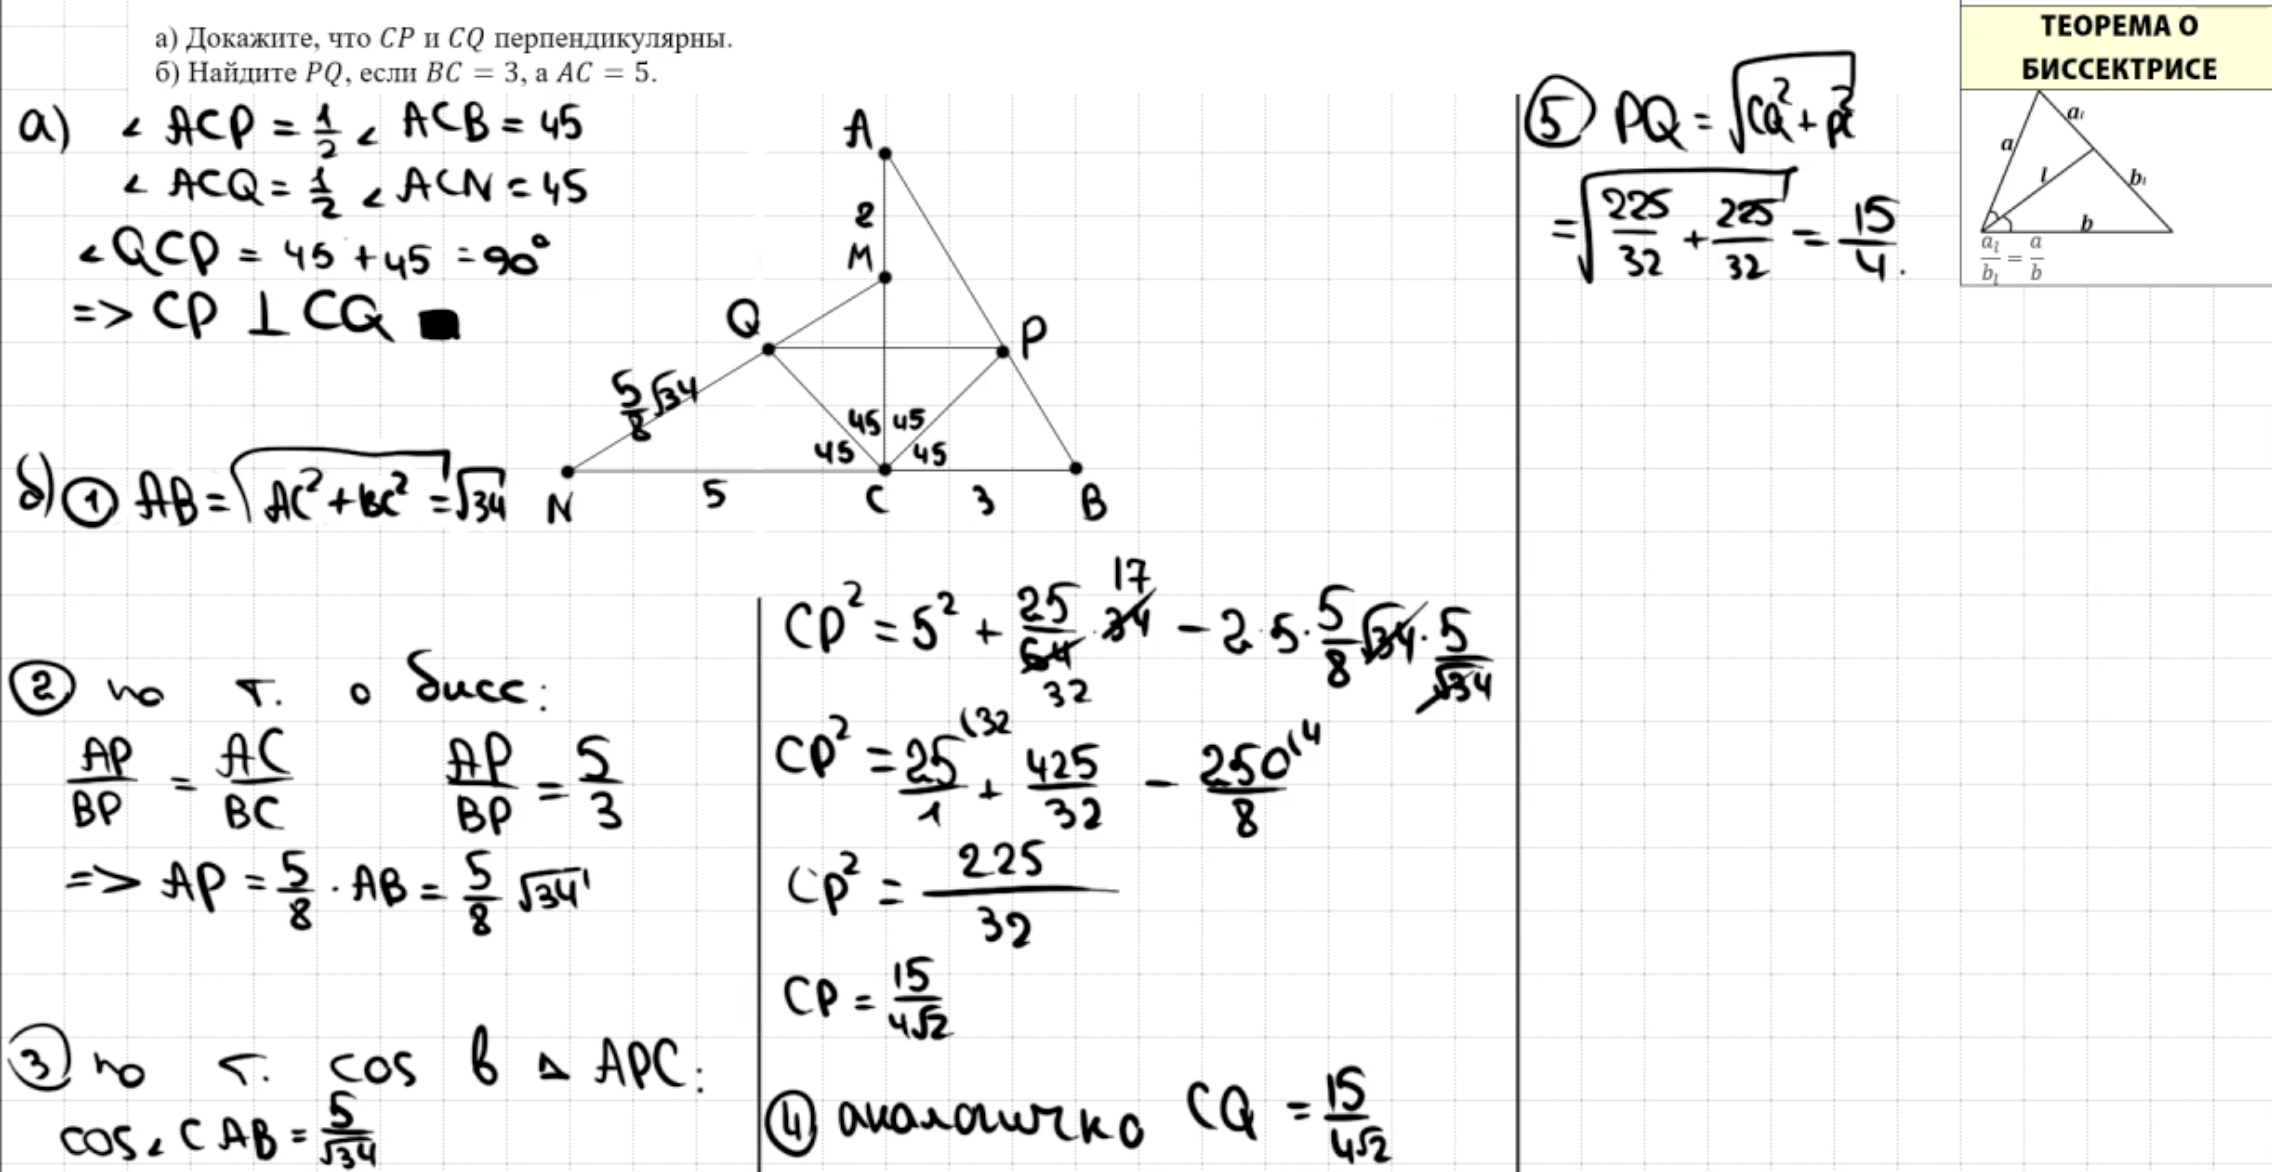 а) Докажите, что CP и CQ перпендикулярны.
б) Найдите PQ, если BC = 3, а AC = 5.
а) ∠ ACP = 1/2 ∠ ACB = 45
∠ ACQ = 1/2 ∠ ACN = 45
∠ QCP = 45 + 45 = 90°
=> CP ⊥ CQ ■
A
2
M
Q
P
5/8 √34
45 45
45 45
N 5 C 3 B
б) ① AB = √(AC² + BC²) = √34
② по т. о бисс:
AP/BP = AC/BC AP/BP = 5/3
=> AP = 5/8 · AB = 5/8 √34
③ по т. cos в △ APC:
cos ∠ CAB = 5/√34
17
CP² = 5² + 25/64 · 34 − 2·5·5/8 √34 · 5/√34
32
CP² = 25/1 (32 + 425/32 − 250/8 (4
CP² = 225/32
CP = 15/4√2
④ аналогично CQ = 15/4√2
⑤ PQ = √(CQ² + PC²)
= √(225/32 + 225/32) = 15/4.
ТЕОРЕМА О
БИССЕКТРИСЕ
a aₗ
l bₗ
b
aₗ/bₗ = a/b